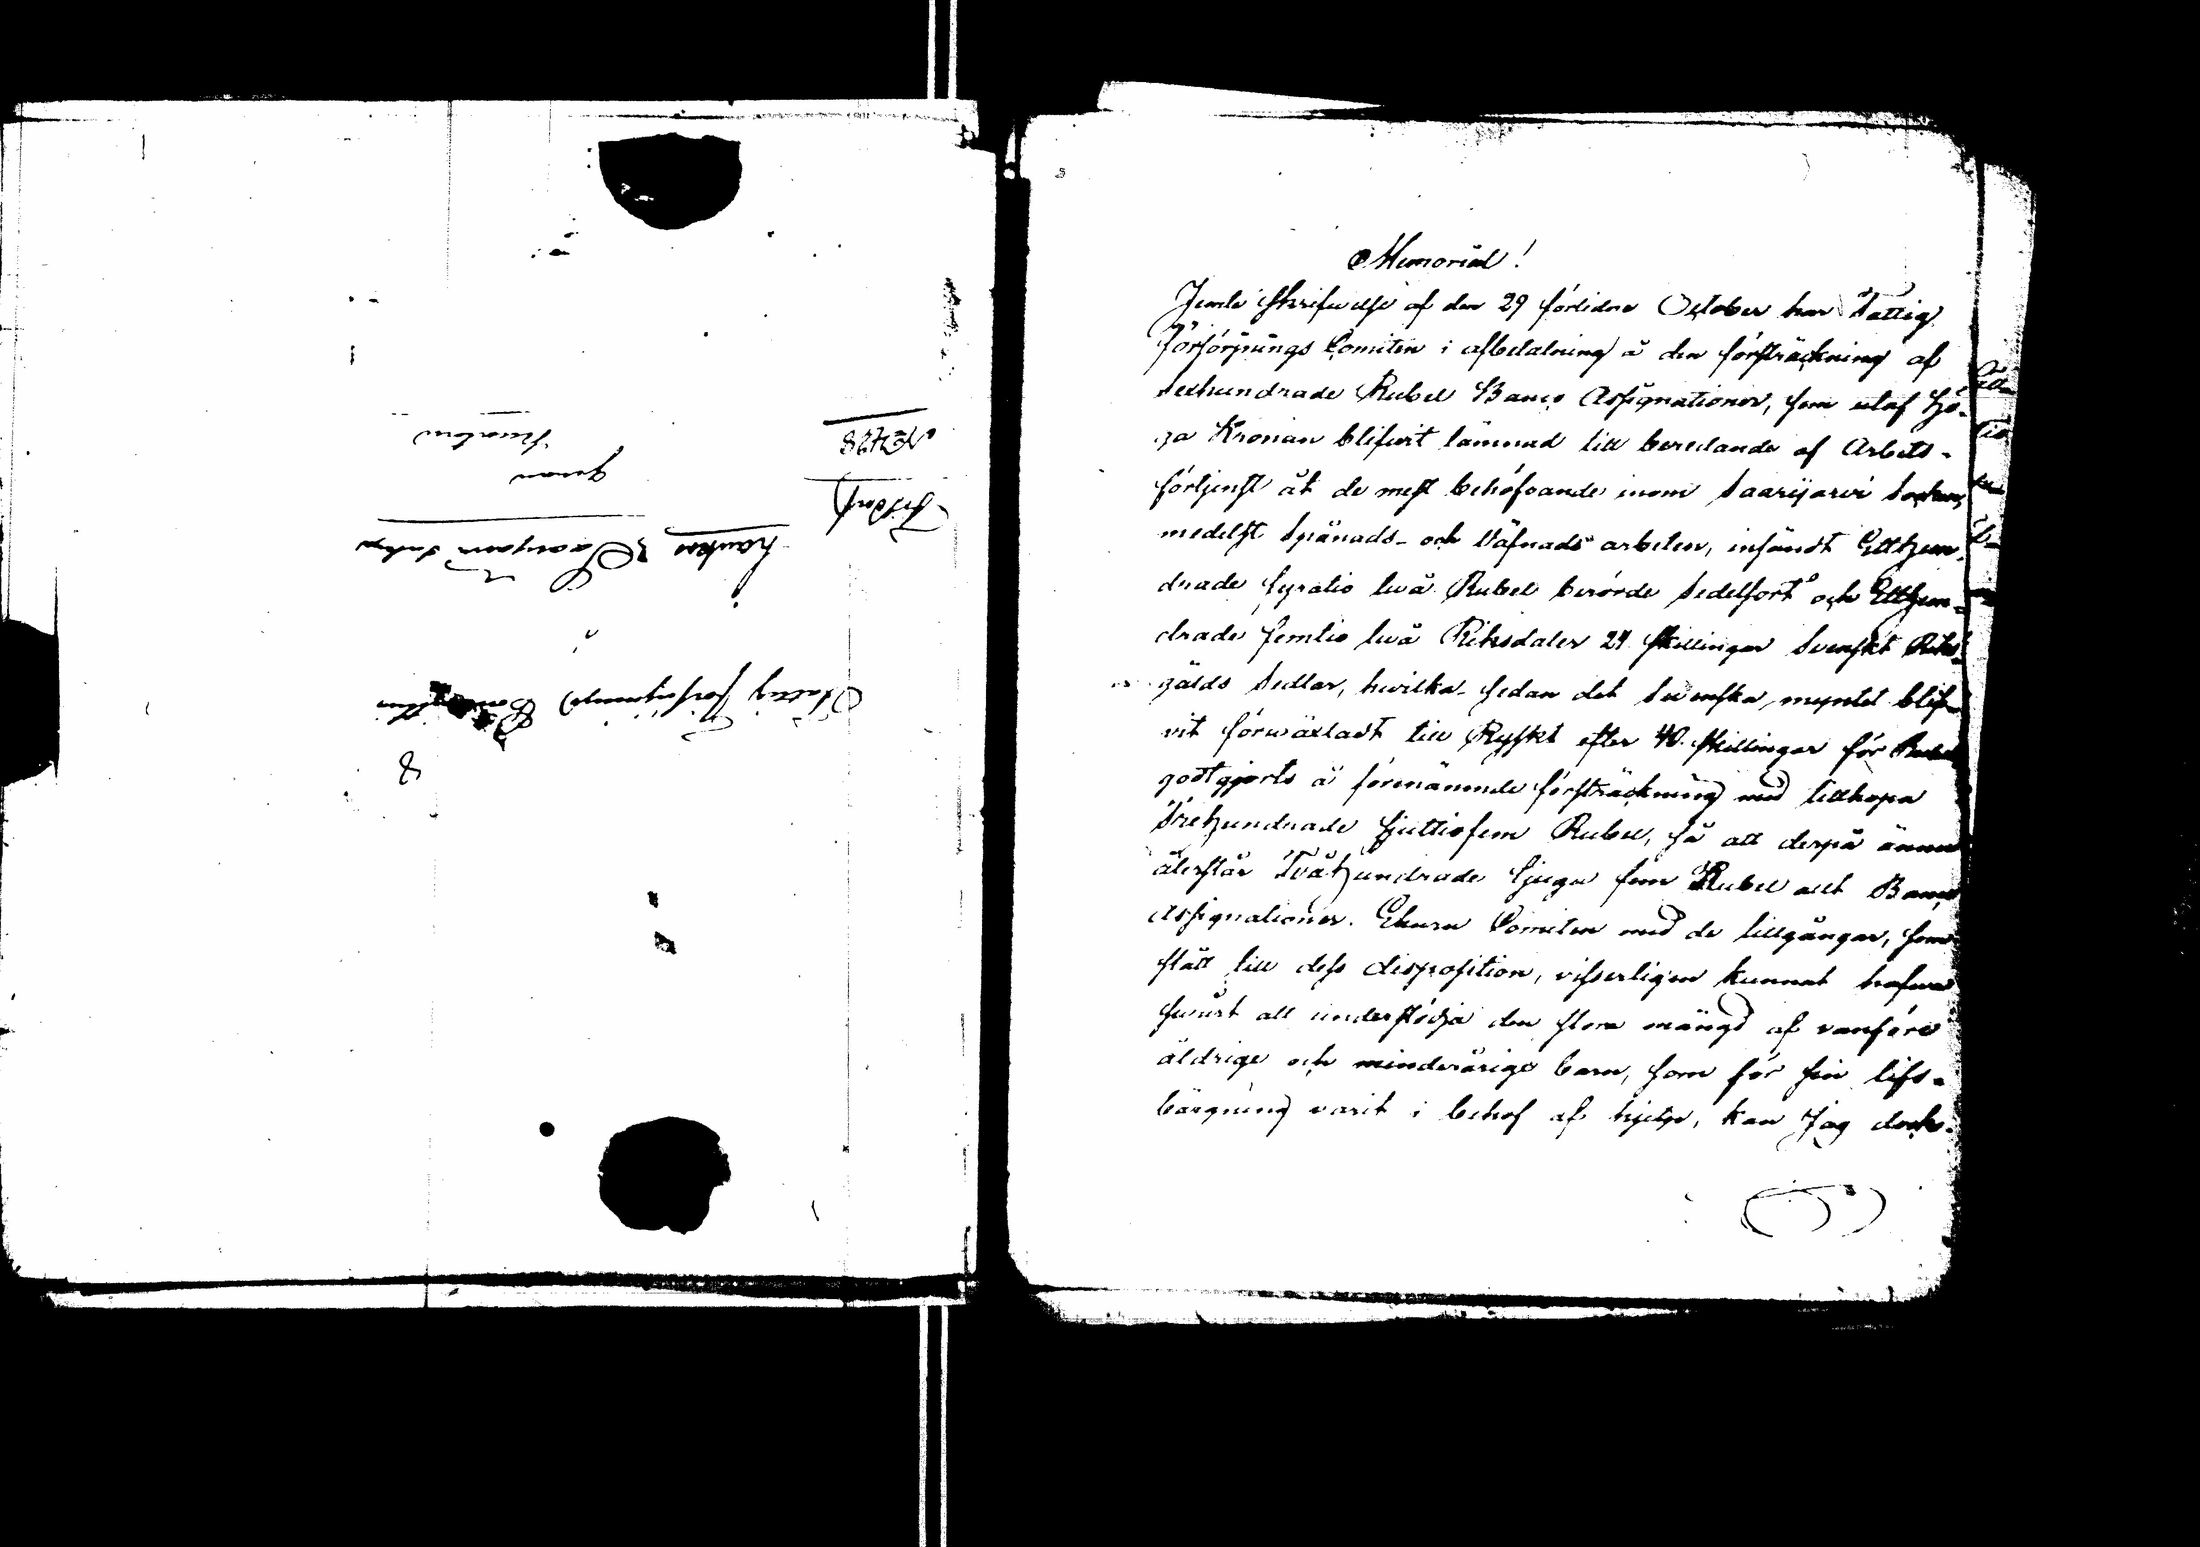 Fattig Försörjnings Comitten
i
Laukas & Saarijärvi Socknar
genom
Kuvalen
Fribref
No 428
Memorial!
Jemte Skrifwelse af den 29 förlidne October har Fattig
Försörjnings Comiten i afbetalning å den försträckning af
Sexhundrade Rubel Banco Assignationer, som utaf Hö-
ga Kronan blifwit lämnad till beredande af Arbets-
förtjenst åt de mest behöfvande inom Saarijärvi Socken,
medelst Spånads- och Väfnads arbeten, insändt Etthun-
drade fyratio twå Rubel berörde Sedelsort och Etthun-
drade femtio twå Riksdaler 24 Skillingar Svenskt Riks-
gälds Sedlar, hwilka sedan det Swenska myntet blif-
vit förwäxladt till Ryskt efter 40 Skillingar för Rubel
godtgjorts å förenämnde försträckning med tillhopa
Trehundrade Sjuttiofem Rubel, så att derpå ännu
återstår Tvåhundrade tjugu fem Rubel allt Banco
Assignationer. Ehuru Comiten med de tillgångar, som
stått till dess disposition, visserligen kunnat hafwa
swårt att understödja den stora mängd af vanföre
åldrige och minderårige barn, som för sin lifs-
bärgning varit i behof af hjelp, kan Jag dock